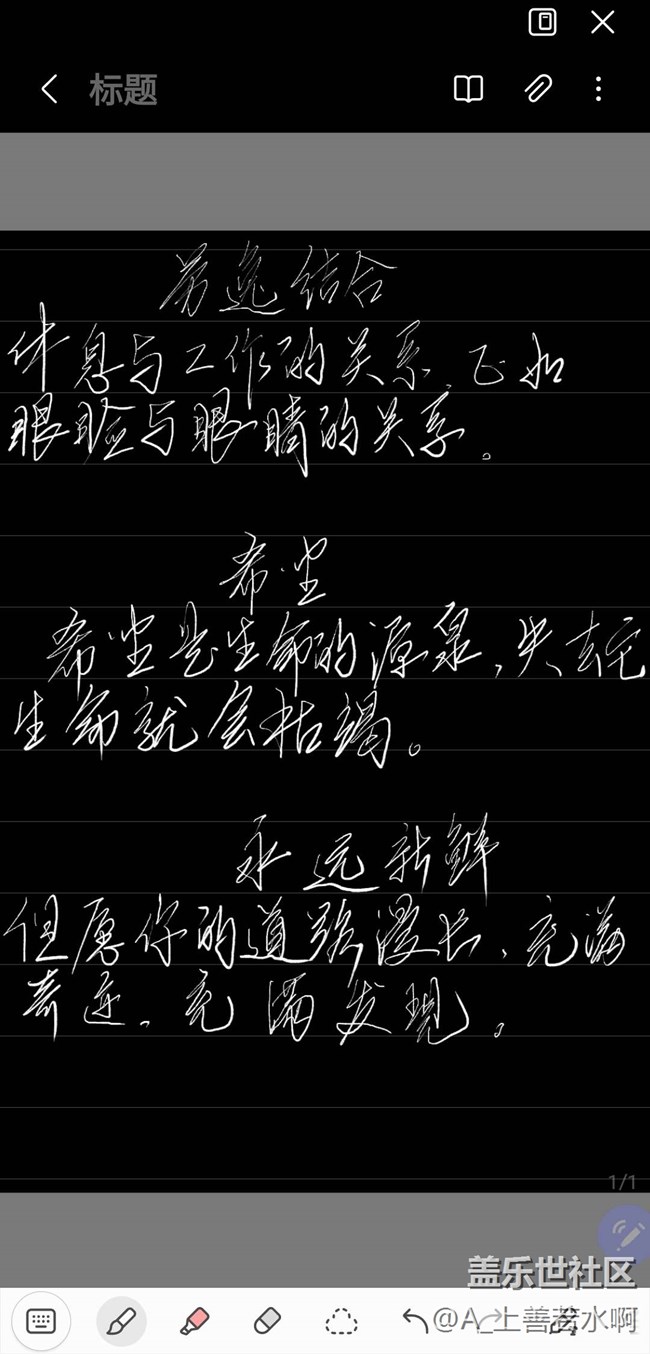 标题
劳逸结合
休息与工作的关系,正如
眼睑与眼睛的关系。
希望
希望是生命的源泉,失去它
生命就会枯竭。
永远新鲜
但愿你的道路漫长,充满
奇迹,充满发现。
1/1
盖乐世社区
@A_上善若水啊